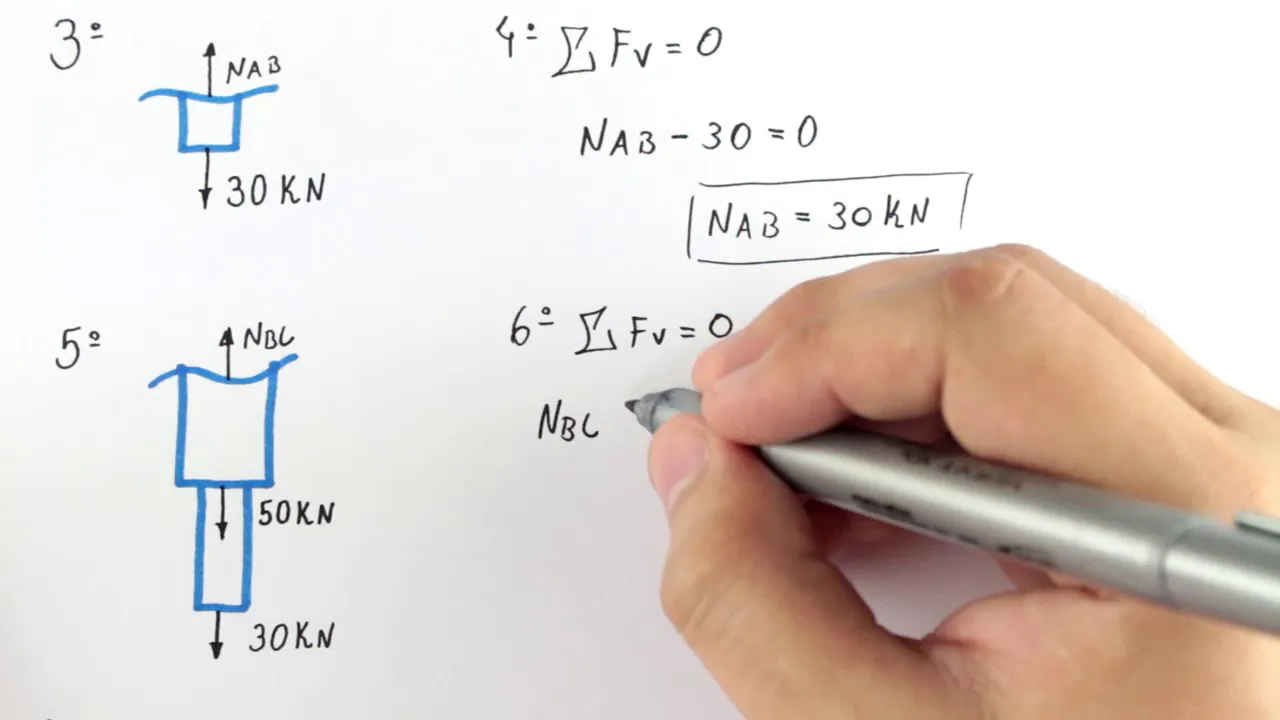 3º
NAB
30 KN
4º ∑ Fv = 0
NAB - 30 = 0
NAB = 30 KN
5º
NBC
50KN
30KN
6º ∑ Fv = 0
NBC